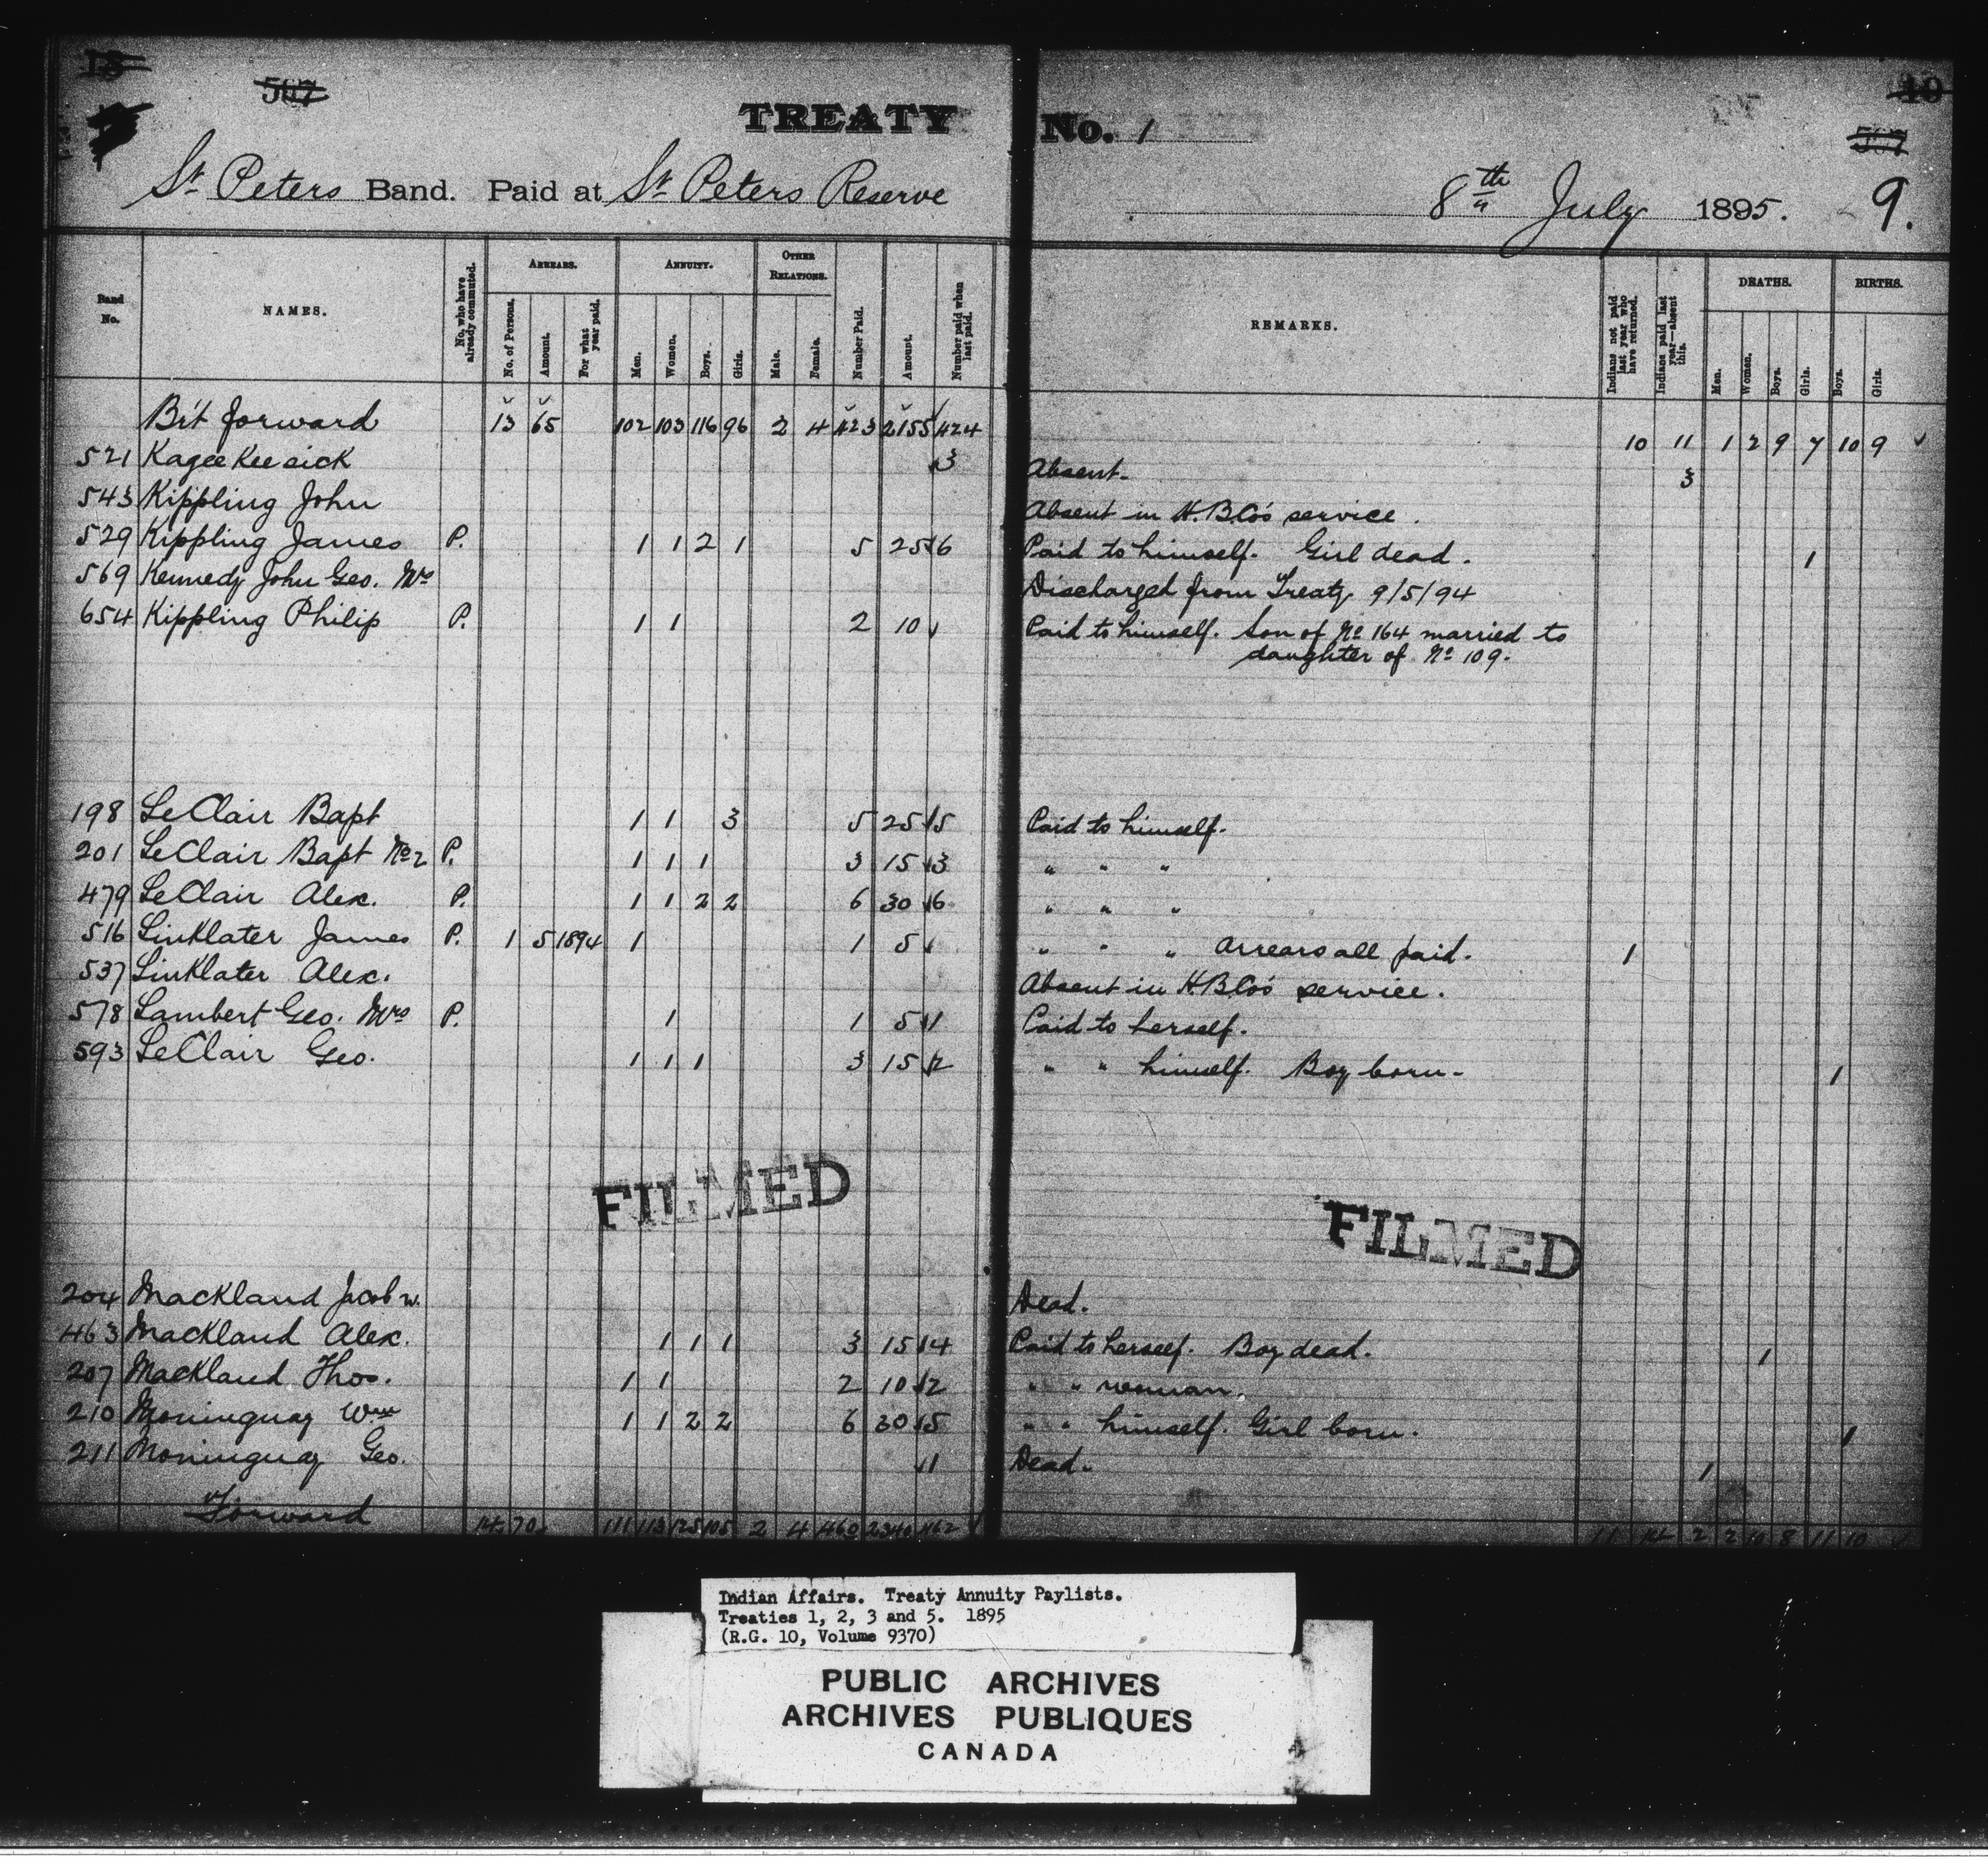 18 19
507 507
TREATY No. 1
St Peters Band. Paid at St Peters Reserve 8th July 1895. 9.
Band No. NAMES. No. who have already commuted. ARREARS. No. of Persons. Amount. For what year paid. ANNUITY. Men. Women. Boys. Girls. OTHER RELATIONS. Male. Female. Number Paid. Amount. Number paid when last paid. REMARKS. Indians not paid last year who have returned. Indians paid last year—absent this. DEATHS. Men. Women. Boys. Girls. BIRTHS. Boys. Girls.
Brt forward 13 65 102 103 116 96 2 4 423 2155 424 10 11 1 2 9 7 10 9
521 Kagee Kee sick 3 Absent. 3
543 Kippling John Absent in H.B.Co's service.
529 Kippling James P. 1 1 2 1 5 25 6 Paid to himself. Girl dead. 1
569 Kennedy John Geo. Mrs Discharged from Treaty 9/5/94
654 Kippling Philip P. 1 1 2 10 Paid to himself. Son of No 164 married to
daughter of No 109.
198 LeClair Bapt 1 1 3 5 25 5 Paid to himself.
201 LeClair Bapt No 2 P. 1 1 1 3 15 3 " " "
479 LeClair Alex. P. 1 1 2 2 6 30 6 " " "
516 Linklater James P. 1 5 1894 1 1 5 " " " Arrears all paid. 1
537 Linklater Alex. Absent in H.B.Co's service.
578 Lambert Geo. Mrs P. 1 1 5 1 Paid to herself.
593 LeClair Geo. 1 1 1 3 15 2 " " himself. Boy born. 1
FILMED FILMED
204 Mackland Jacob w. Dead.
463 Mackland Alex. 1 1 1 3 15 4 Paid to herself. Boy dead. 1
207 Mackland Thos. 1 1 2 10 2 " " woman.
210 Moninguay Wm 1 1 2 2 6 30 5 " " himself. Girl born. 1
211 Moninguay Geo. 1 Dead. 1
Forward 14 70 111 113 125 105 2 4 460 2340 462 11 14 2 2 10 8 11 10
Indian Affairs. Treaty Annuity Paylists.
Treaties 1, 2, 3 and 5. 1895
(R.G. 10, Volume 9370)
PUBLIC ARCHIVES
ARCHIVES PUBLIQUES
CANADA